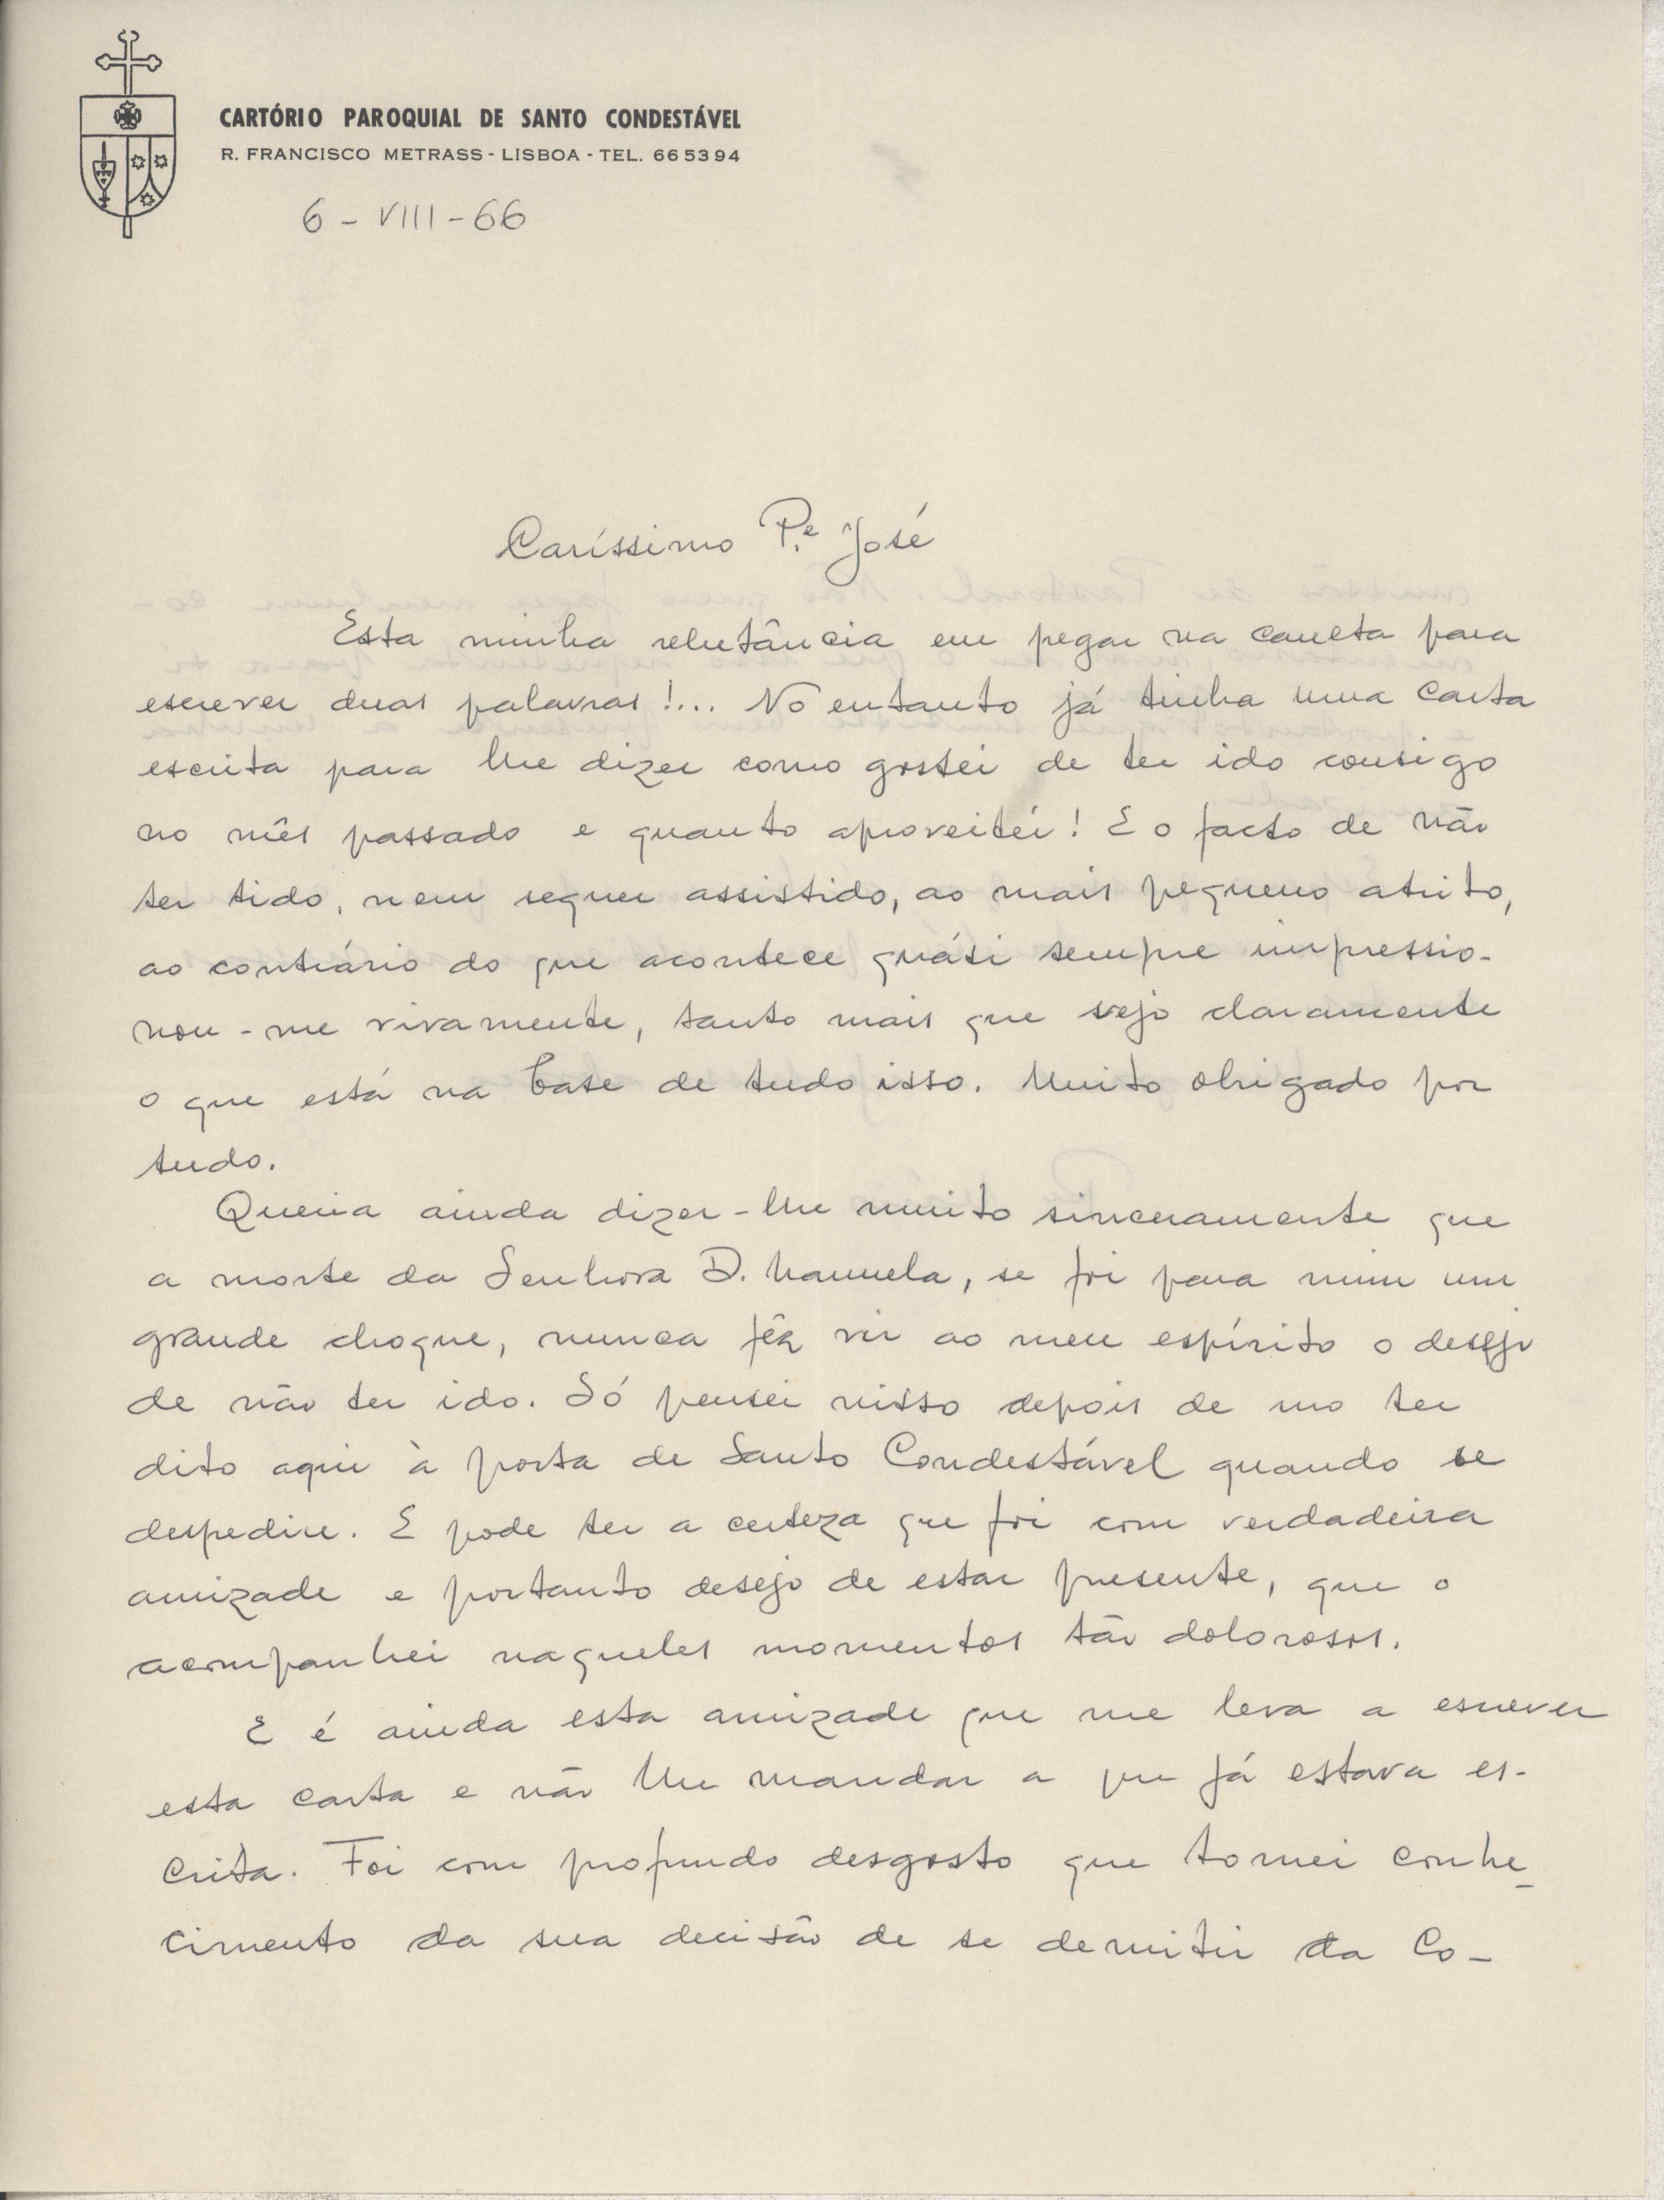 CARTÓRIO PAROQUIAL DE SANTO CONDESTÁVEL
R. FRANCISCO METRASS - LISBOA - TEL. 665394
6 - VIII - 66
Caríssimo P.e José
Esta minha relutância em pegar na caneta para
escrever duas palavras!... No entanto já tinha uma carta
escrita para lhe dizer como gostei de ter ido consigo
no mês passado e quanto aproveitei! E o facto de não
ter tido, nem sequer assistido, ao mais pequeno atrito,
ao contrário do que acontece quási sempre impressio-
nou-me vivamente, tanto mais que vejo claramente
o que está na base de tudo isso. Muito obrigado por
tudo.
Queria ainda dizer-lhe muito sinceramente que
a morte da Senhora D. Manuela, se foi para mim um
grande choque, nunca fêz vir ao meu espírito o desejo
de não ter ido. Só pensei nisso depois de mo ter
dito aqui à porta de Santo Condestável quando se
despediu. E pode ter a certeza que foi com verdadeira
amizade e portanto desejo de estar presente, que o
acompanhei naqueles momentos tão dolorosos.
E é ainda esta amizade que me leva a escrever
esta carta e não lhe mandar a que já estava es-
crita. Foi com profundo desgosto que tomei conhe-
cimento da sua decisão de se demitir da Co-